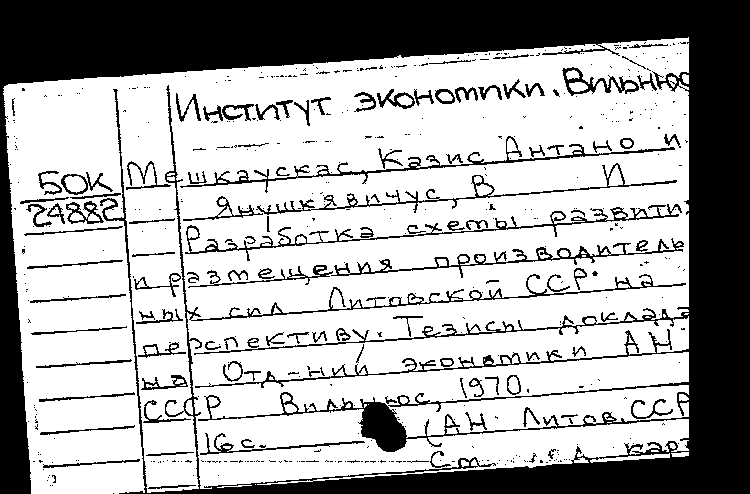 Институт экономики. Вильнюс
Мешкаускас, Казис Антано и
БОК
24882
Янушкявичус, В И
Разработка схемы развити
и размещения производитель
ных сил Литовской ССР на
перспективу. Тезисы доклада
на Отд-нии экономики АН
СССР. Вильнюс, 1970.
16 с. (АН Литов. ССР
См. карт